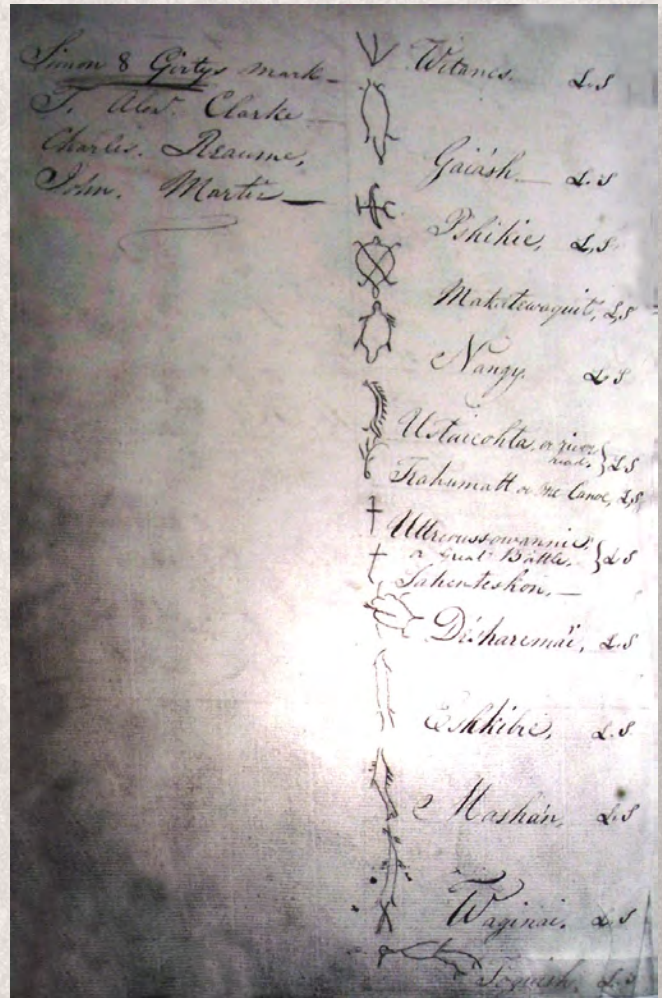 Simon 8 Girtys mark –
T. Alexr. Clarke –
Charles. Reaume,
John. Martin –
Witanes. L.S
Gaiásh – L.S
Pshikie, L,S
Makatewaquit, L,S
Nangy. L S
Ustaicohta, or river L S
Trahumatt or one Canoe, L,S
Uttreoussowannies.
or Great Battle. } L S
Sahenteshon. –
Désharemai, L.S
Eshkibie, L.S.
Mashán, L.S
Waginai. L S
Toquish. L.S